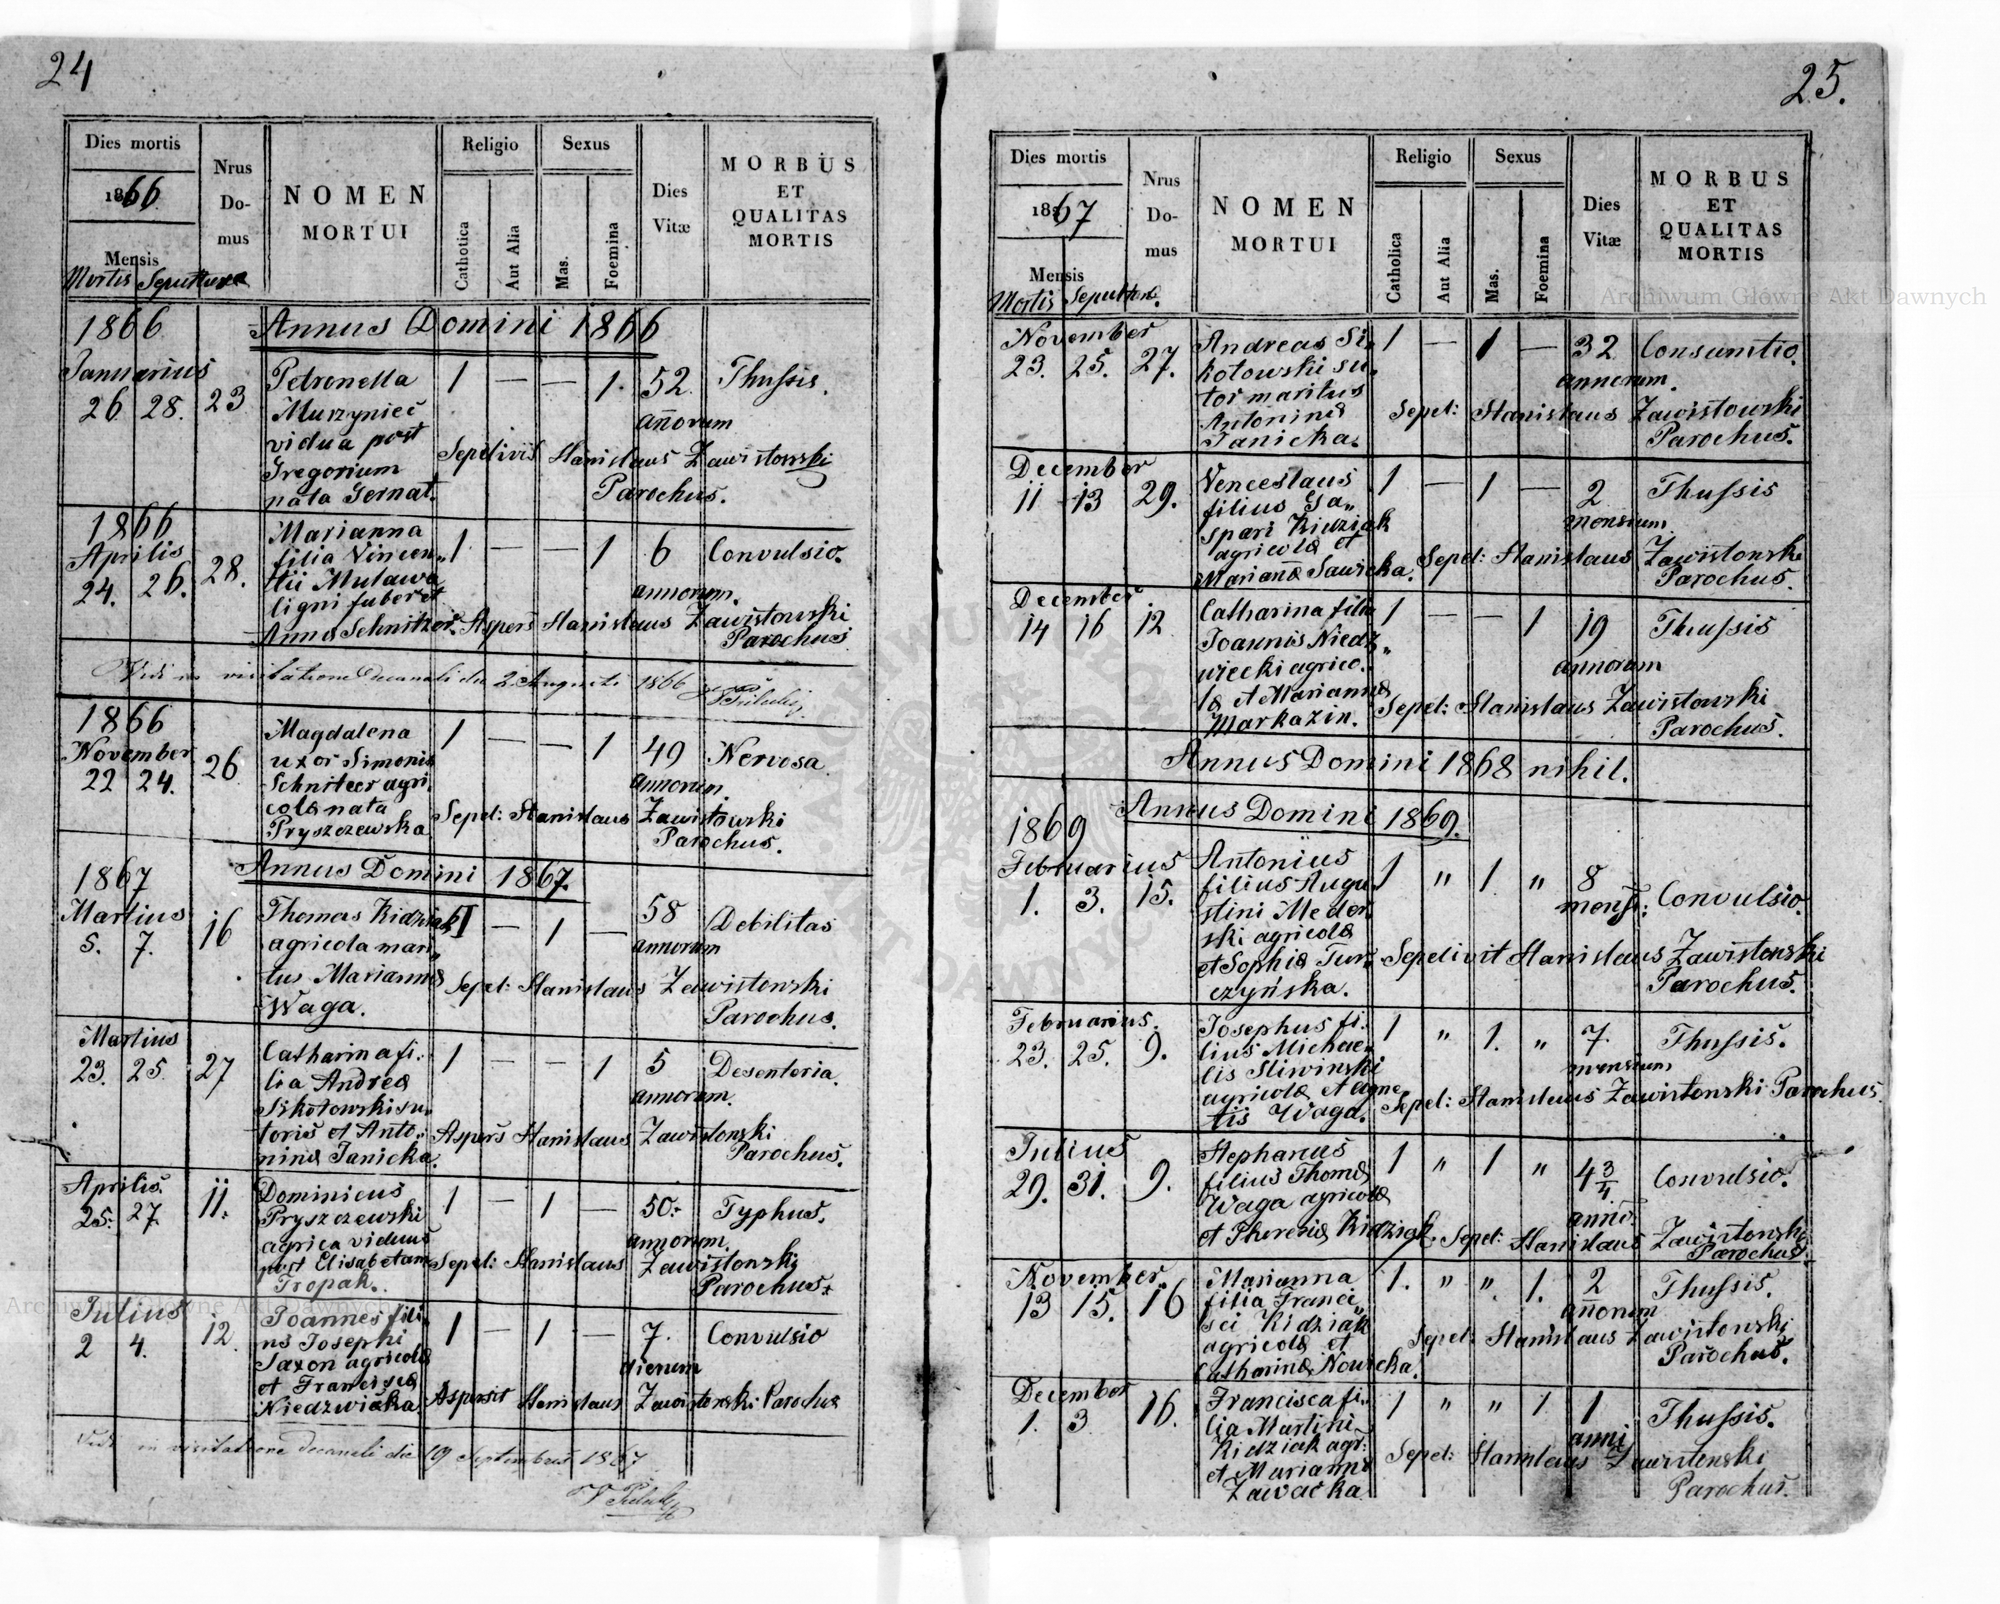 24
Dies mortis
1866.
Mensis
Mortis Sepulturae
Nrus
Do-
mus
NOMEN
MORTUI
Religio
Catholica
Aut Alia
Sexus
Mas.
Foemina
Dies
Vitæ
MORBUS
ET
QUALITAS
MORTIS
1866 Annus Domini 1866
Januarius
26 28. 23
Petronella
Murzyniec
vidua post
Gregorium
nata Gernat.
1 — — 1. 52
annorum
Thussis.
Sepelivit Stanislaus Zawistowski
Parochus.
1866
Aprilis
24. 26. 28.
Marianna
filia Vincen„
tii Mulawa
ligni faber et
Anna Schnitzer.
1 — — 1 6
annorum.
Convulsio.
Aspers Stanislaus Zawistowski
Parochus
Vidi in visitatione Decanali die 2 Augusti 1866
1866
November
22 24. 26
Magdalena
uxor Simonis
Schnitzer agri,
colæ nata
Pryszczewska
1 — — 1 49
annorum.
Nervosa
Sepel: Stanislaus Zawistowski
Parochus.
1867 Annus Domini 1867.
Martius
5. 7. 16
Thomas Kidziak
agricola mari„
tus Mariannæ
Waga.
1 — 1 — 58
annorum
Debilitas
Sepel: Stanislaus Zawistowski
Parochus.
Martius
23. 25. 27
Catharina fi„
lia Andreæ
Sikotowski su„
toris et Anto„
ninæ Janicka.
1 — — 1 5
annorum.
Desenteria.
Aspers Stanislaus Zawistowski
Parochus.
Aprilis.
25. 27. 11.
Dominicus
Pryszczewski
agrica viduus
post Elisabetam
Tropak.
1 — 1 — 50.
annorum.
Typhus.
Sepel: Stanislaus Zawistowski
Parochus.
Julius
2 4. 12.
Joannes fili„
us Josephi
Saxon agricolæ
et Franciscæ
Niedzwiecka
1 — 1 — 7.
dierum
Convulsio
Aspersit Stanislaus Zawistowski Parochus
Vidi in visitatione Decanali die 19 Septembris 1867
25.
Dies mortis
1867
Mensis
Mortis Sepulturæ.
Nrus
Do-
mus
NOMEN
MORTUI
Religio
Catholica
Aut Alia
Sexus
Mas.
Foemina
Dies
Vitæ
MORBUS
ET
QUALITAS
MORTIS
Archiwum Główne Akt Dawnych
November
23. 25. 27.
Andreas Si„
kotowski su„
tor maritus
Antoninæ
Janicka.
1 — 1 — 32
annorum.
Consumtio.
Sepel: Stanislaus Zawistowski
Parochus.
December
11 13 29.
Venceslaus
filius Ga„
spari Kidziak
agricolæ et
Mariannæ Sawicka.
1 — 1 — 2
mensium
Thussis
Sepel: Stanislaus Zawistowski
Parochus.
December.
14 16 12
Catharina filia
Joannis Niedz„
wiecki agrico„
læ et Mariannæ
Markazin.
1 — — 1 19
annorum
Thussis
Sepel: Stanislaus Zawistowski
Parochus.
Annus Domini 1868 nihil.
Annus Domini 1869.
1869
Februarius
1. 3. 15.
Antonius
filius Augu„
stini Meder„
ski agricolæ
et Sophiæ Tur„
czyńska.
1 „ 1. „ 8
mens:
Convulsio.
Sepelivit Stanislaus Zawistowski
Parochus.
Februarius.
23. 25. 9.
Josephus fi„
lius Michae„
lis Sliwinski
agricolæ et Agne
tis Waga.
1 „ 1. „ 7.
mensium
Thussis.
Sepel: Stanislaus Zawistowski Parochus.
Julius
29. 31. 9.
Stephanus
filius Thomæ
Waga agricolæ
et Theresiæ Kidziak.
1 „ 1 „ 4 3/4
anno:
Convulsio.
Sepel: Stanislaus Zawistowski
Parochus.
November.
13 15. 16
Marianna
filia Franci„
sci Kidziak
agricolæ et
Catharinæ Nowicka.
1. „ „ 1. 2
annorum
Thussis.
Sepel: Stanislaus Zawistowski
Parochus.
December
1. 3 16.
Francisca fi„
lia Martini
Kidziak agr:
et Mariannæ
Zawacka
1 „ „ 1 1
anni
Thussis.
Sepel: Stanislaus Zawistowski
Parochus.
Archiwum Główne Akt Dawnych